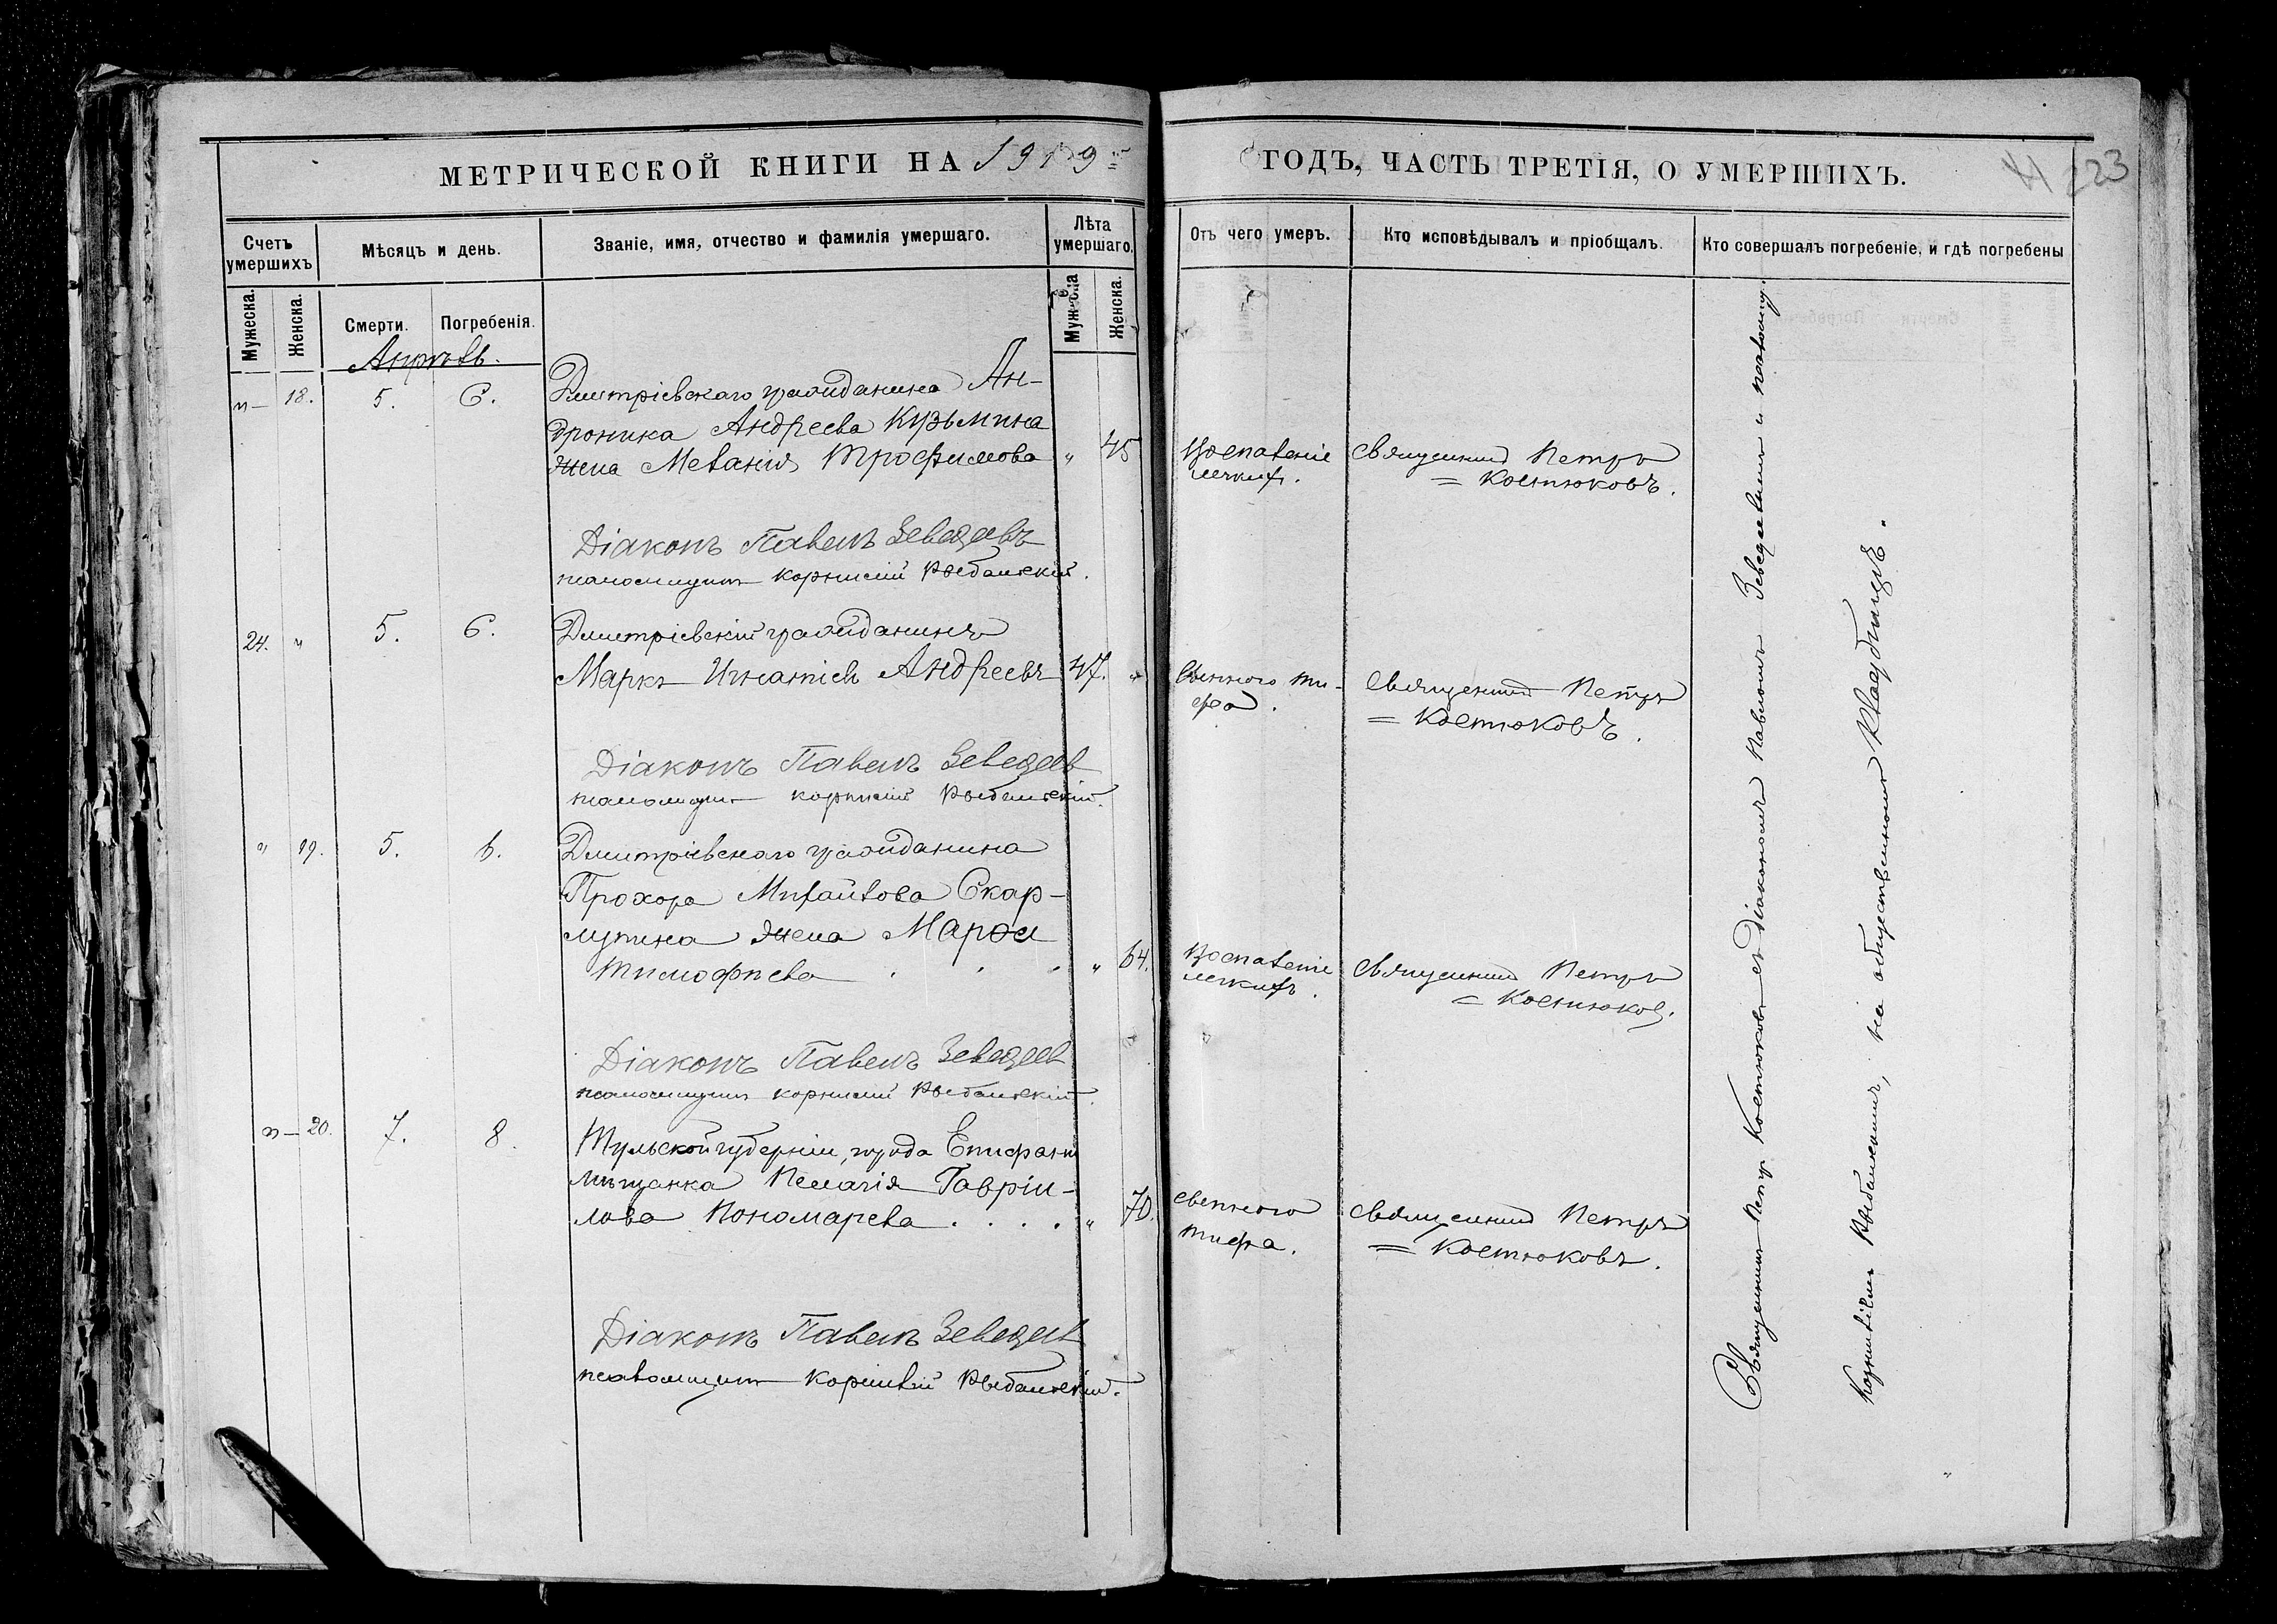 МЕТРИЧЕСКОЙ КНИГИ НА 1919
ГОДЪ, ЧАСТЬ ТРЕТІЯ, О УМЕРШИХЪ.
223
Счетъ умершихъ
Мѣсяцъ и день.
Званіе, имя, отчество и фамилія умершаго.
Лѣта умершаго.
Отъ чего умеръ.
Кто исповѣдывалъ и пріобщалъ.
Кто совершалъ погребеніе, и гдѣ погребены
Мужеска.
Женска.
Смерти.
Погребенія.
Мужеска
Женска.
Апрѣль.
" 18. 5. 6. Дмитріевскаго гражданина Ан-
дроника Андреева Кузьмина
жена Меланія Трофимова " 45 Воспаленіе Священникъ Петръ
легкихъ. = Костюковъ.
Діаконъ Павелъ Зеведеевъ
псаломщикъ Корнилій Рыбальскій.
24. " 5. 6. Дмитріевскій гражданинъ
Маркъ Игнатіевъ Андреевъ 47. " Сыпного ти- Священникъ Петръ
фа. = Костюковъ.
Діаконъ Павелъ Зеведеевъ
псаломщикъ Корнилій Рыбальскій.
" 19. 5. 6. Дмитріевскаго гражданина
Прохора Михайлова Скар-
лупина жена Марѳа
Тимофѣева . . . " 64. Воспаленіе Священникъ Петръ
легкихъ. = Костюков.
Діаконъ Павелъ Зеведеевъ
псаломщикъ Корнилій Рыбальскій.
" 20. 7. 8. Тульской губерніи, города Епифани
мѣщанка Пелагія Гавріи-
лова Пономарева . . . . " 70. Сыпного Священникъ Петръ
тифа. = Костюковъ.
Діаконъ Павелъ Зеведеевъ
псаломщикъ Корнилій Рыбальскій.
Священникъ Петръ Костюковъ съ Діакономъ Павломъ Зеведеевымъ и псаломщ.
Корниліемъ Рыбальскимъ, на общественномъ кладбищѣ.